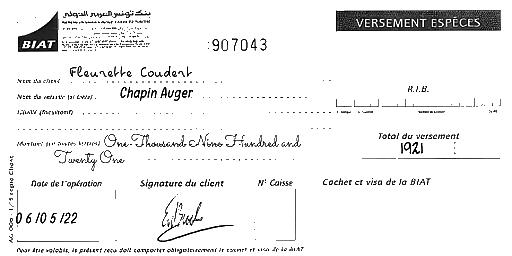 بنك تونس العربي الدولي
BIAT
907043
VERSEMENT ESPÈCES
Nom du client Fleurette Coudert
Nom du verseur (si tiers) Chapin Auger
R.I.B.
Libellé (facultatif)
Montant (en toutes lettres) One Thousand Nine Hundred and
Twenty One
Total du versement
1921
Date de l'opération
Signature du client
N° Caisse
Cachet et visa de la BIAT
06/05/22
Pour être valable, le présent reçu doit comporter obligatoirement le cachet et visa de la BIAT